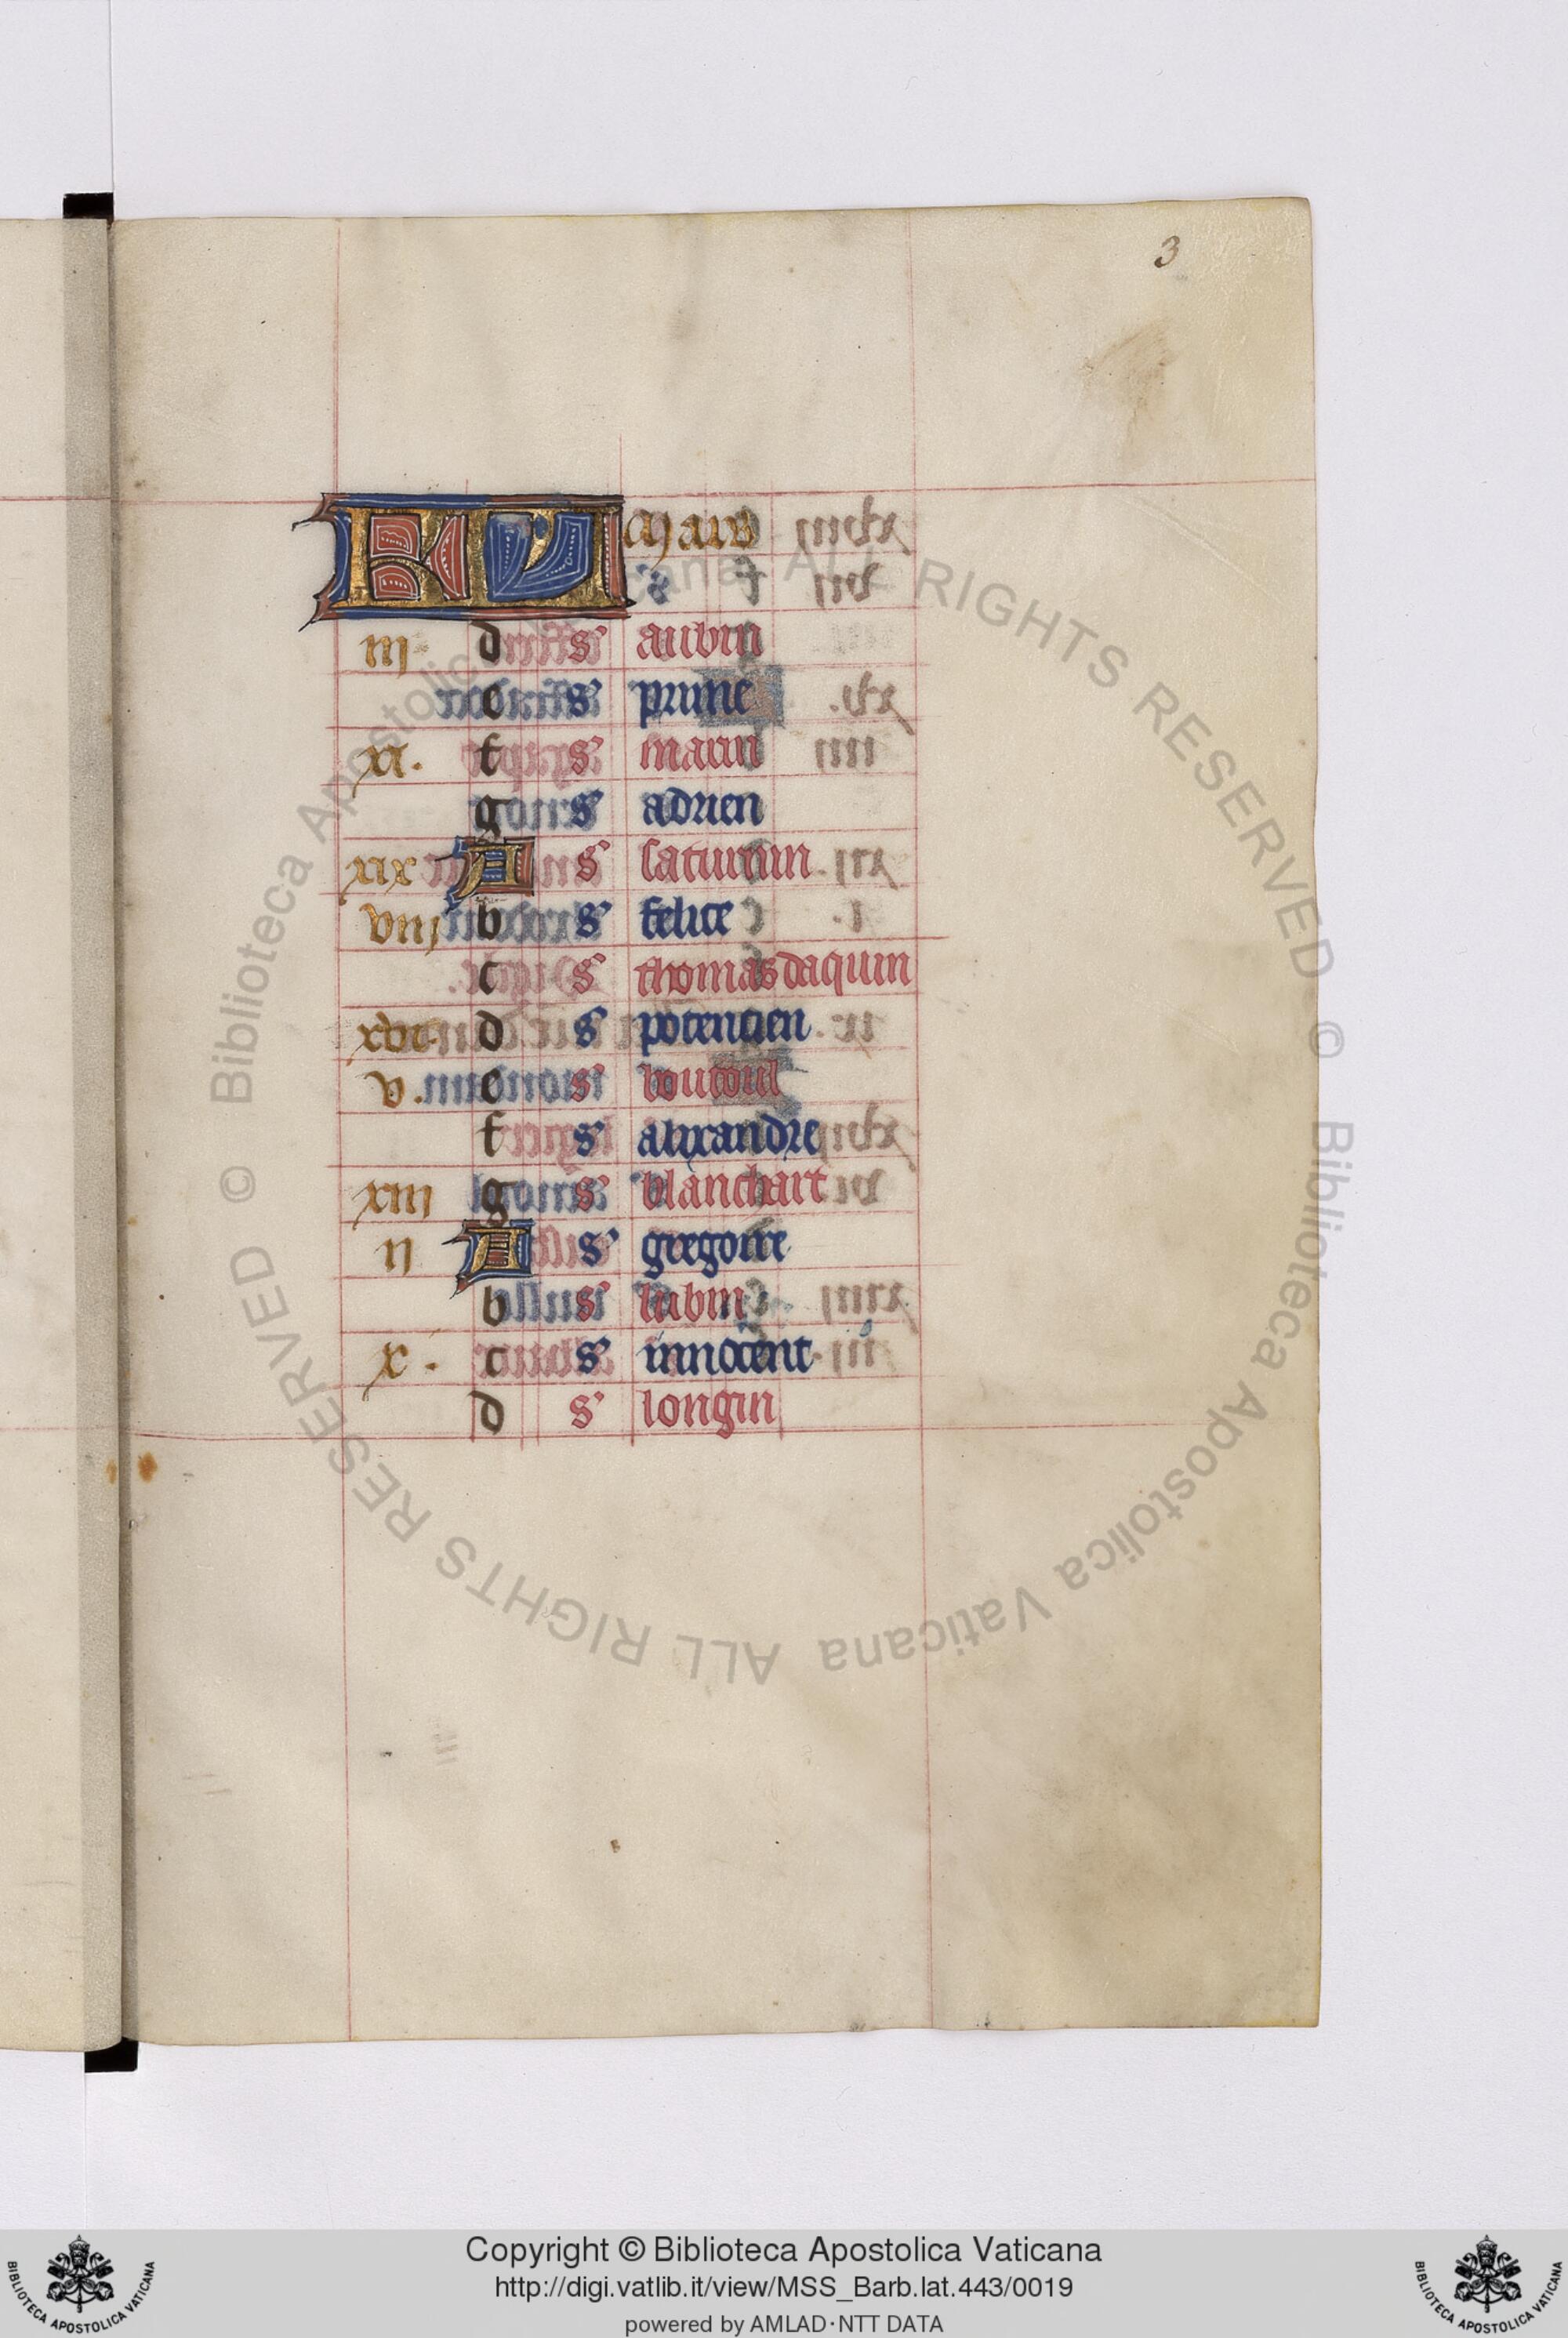 3
KL Mars
iij d s' aubin
e s' prime
xi. f s' marin
g s' adrien
xix A s' saturnin
viij b s' felice
c s' thomas daquin
xvi. d s' potencien
v. e s'
f s' alixandre
xiij g s' blanchart
ij A s' gregoire
b s' lubin
x. c s' innocent
d s' longin
© Biblioteca Apostolica Vaticana ALL RIGHTS RESERVED © Biblioteca Apostolica Vaticana ALL RIGHTS RESERVED
Copyright © Biblioteca Apostolica Vaticana
http://digi.vatlib.it/view/MSS_Barb.lat.443/0019
powered by AMLAD·NTT DATA
BIBLIOTECA APOSTOLICA VATICANA
BIBLIOTECA APOSTOLICA VATICANA